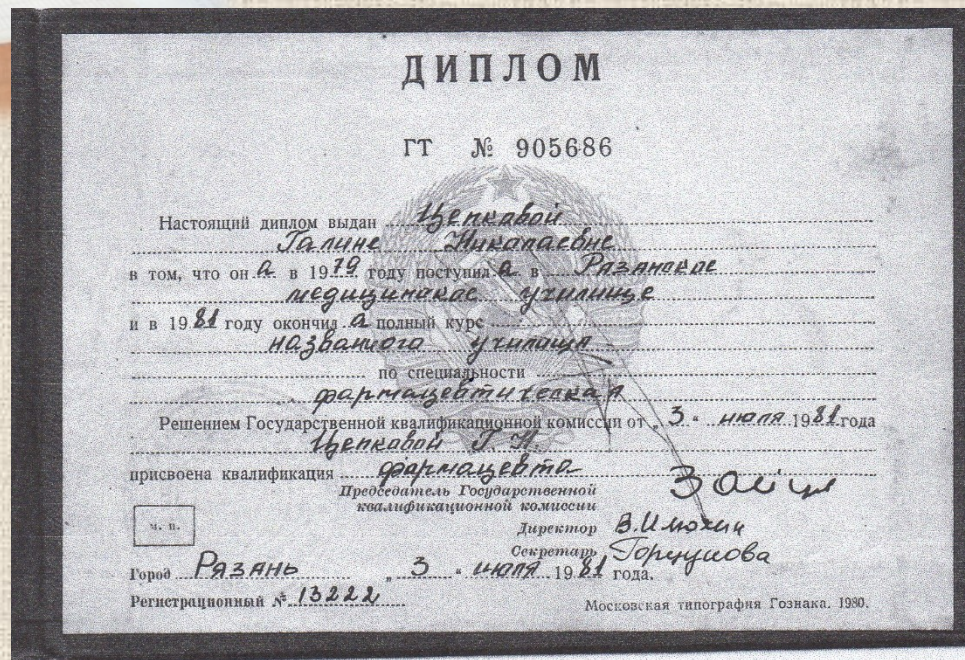 ДИПЛОМ
ГТ № 905686
Настоящий диплом выдан Цепковой
Галине Николаевне
в том, что она в 1979 году поступила в Рязанское
медицинское училище
и в 1981 году окончила полный курс
названного училища
по специальности
фармацевтическая
Решением Государственной квалификационной комиссии от „3“ июля 1981 года
Цепковой Г. Н.
присвоена квалификация фармацевта
Председатель Государственной
квалификационной комиссии
м. п.
Директор
Секретарь
Город Рязань „3“ июля 1981 года.
Регистрационный № 13222
Московская типография Гознака. 1980.